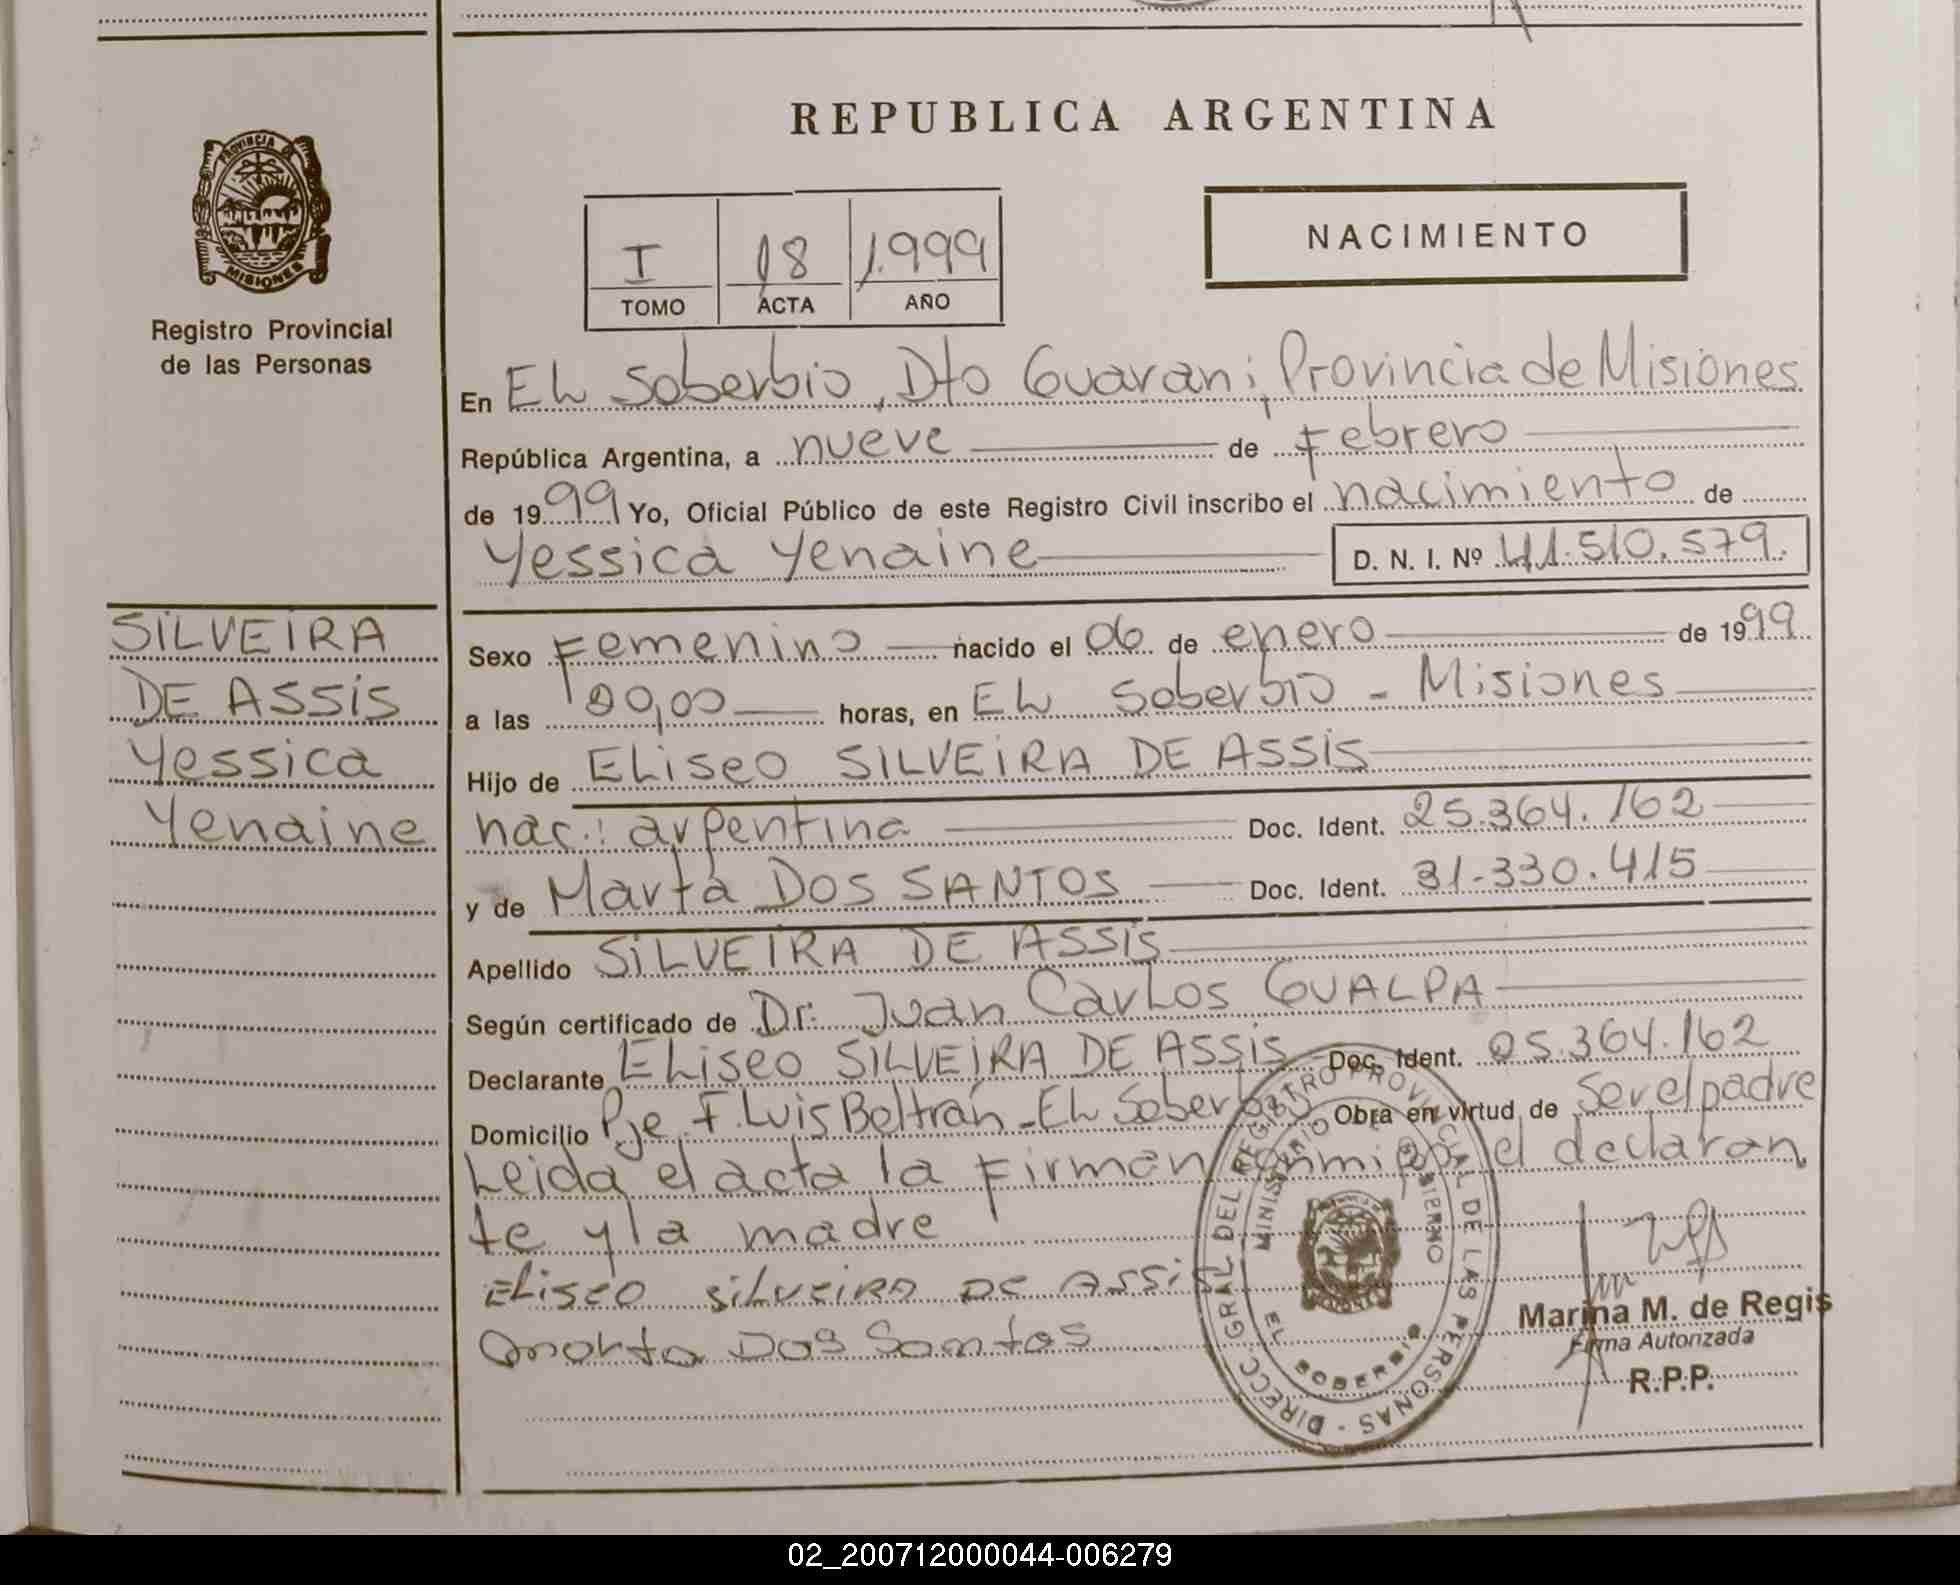 REPUBLICA ARGENTINA
PROVINCIA DE
MISIONES
Registro Provincial
de las Personas
I 18 1.999
TOMO ACTA AÑO
NACIMIENTO
En EL Soberbio, Dto Guarani, Provincia de Misiones
República Argentina, a nueve de Febrero
de 1999 Yo, Oficial Público de este Registro Civil inscribo el nacimiento de
Yessica Yenaine D. N. I. Nº 41.510.579.
SILVEIRA
DE ASSIS
Yessica
Yenaine
Sexo Femenino nacido el 06 de enero de 1999
a las 00,00 horas, en EL Soberbio - Misiones
Hijo de ELiseo SILVEIRA DE ASSIS
nac.: argentina Doc. Ident. 25.364.162
y de Marta DOS SANTOS Doc. Ident. 31.330.415
Apellido SILVEIRA DE ASSIS
Según certificado de Dr. Juan CarLos GUALPA
Declarante ELiseo SILVEIRA DE ASSIS Doc. Ident. 25.364.162
Domicilio Pje F. Luis Beltrán - EL Soberbio Obra en virtud de ser el padre
Leida el acta la Firman conmigo el declaran
te y la madre
ELISEO SILVEIRA DE ASSIS
Marta Dos Santos
DIRECC. GRAL DEL REGISTRO PROVINCIAL DE LAS PERSONAS -
MINISTERIO DE GOBIERNO
EL SOBERBIO
Marina M. de Regis
Firma Autorizada
R.P.P.
02_200712000044-006279